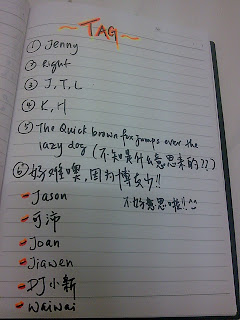 ~TAG~
① Jenny
② Right
③ J, T, L
④ K, H
⑤ The Quick brown fox jumps over the
lazy dog (不知是什么意思来的??)
⑥ 好难噢, 因为博友少!!
不好意思啦!! ^^
- Jason
- 可沛
- Joan
- Jiawen
- DJ小新
- Waiwai